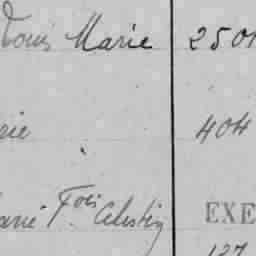 Louis Marie 2501
rie 404
Marie Fois Celestin EXE
127